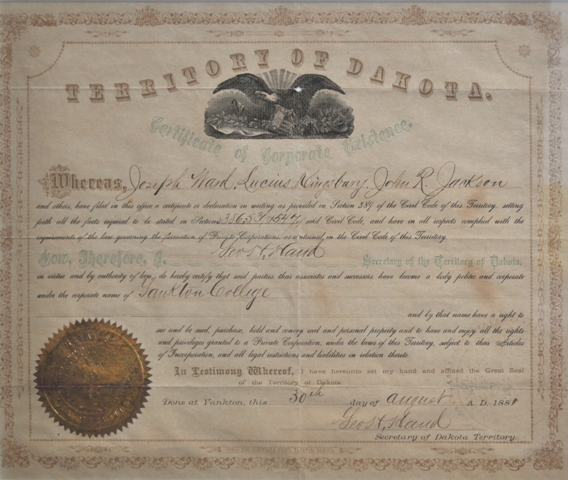 TERRITORY OF DAKOTA.
Certificate of Corporate Existence.
Whereas, Joseph Ward, Lucius Kingsbury, John R. Jackson
and others, have filed in this office a certificate or declaration in writing as provided in Section 389 of the Civil Code of this Territory, setting
forth all the facts required to be stated in Sections 386, 394 & 547 said Civil Code, and have in all respects complied with the
requirements of the law governing the formation of Private Corporations as contained in the Civil Code of this Territory.
Now, Therefore, I, Geo. H. Hand Secretary of the Territory of Dakota,
in virtue and by authority of law, do hereby certify that said parties, their associates and successors, have become a body politic and corporate
under the corporate name of Yankton College
and by that name have a right to
sue and be sued, purchase, hold and convey real and personal property and to have and enjoy all the rights
and privileges granted to a Private Corporation, under the laws of this Territory, subject to their Articles
of Incorporation, and all legal restrictions and liabilities in relation thereto.
In Testimony Whereof, I have hereunto set my hand and affixed the Great Seal
of the Territory of Dakota.
Done at Yankton, this 30th day of August A. D. 1881
Geo. H. Hand
Secretary of Dakota Territory.